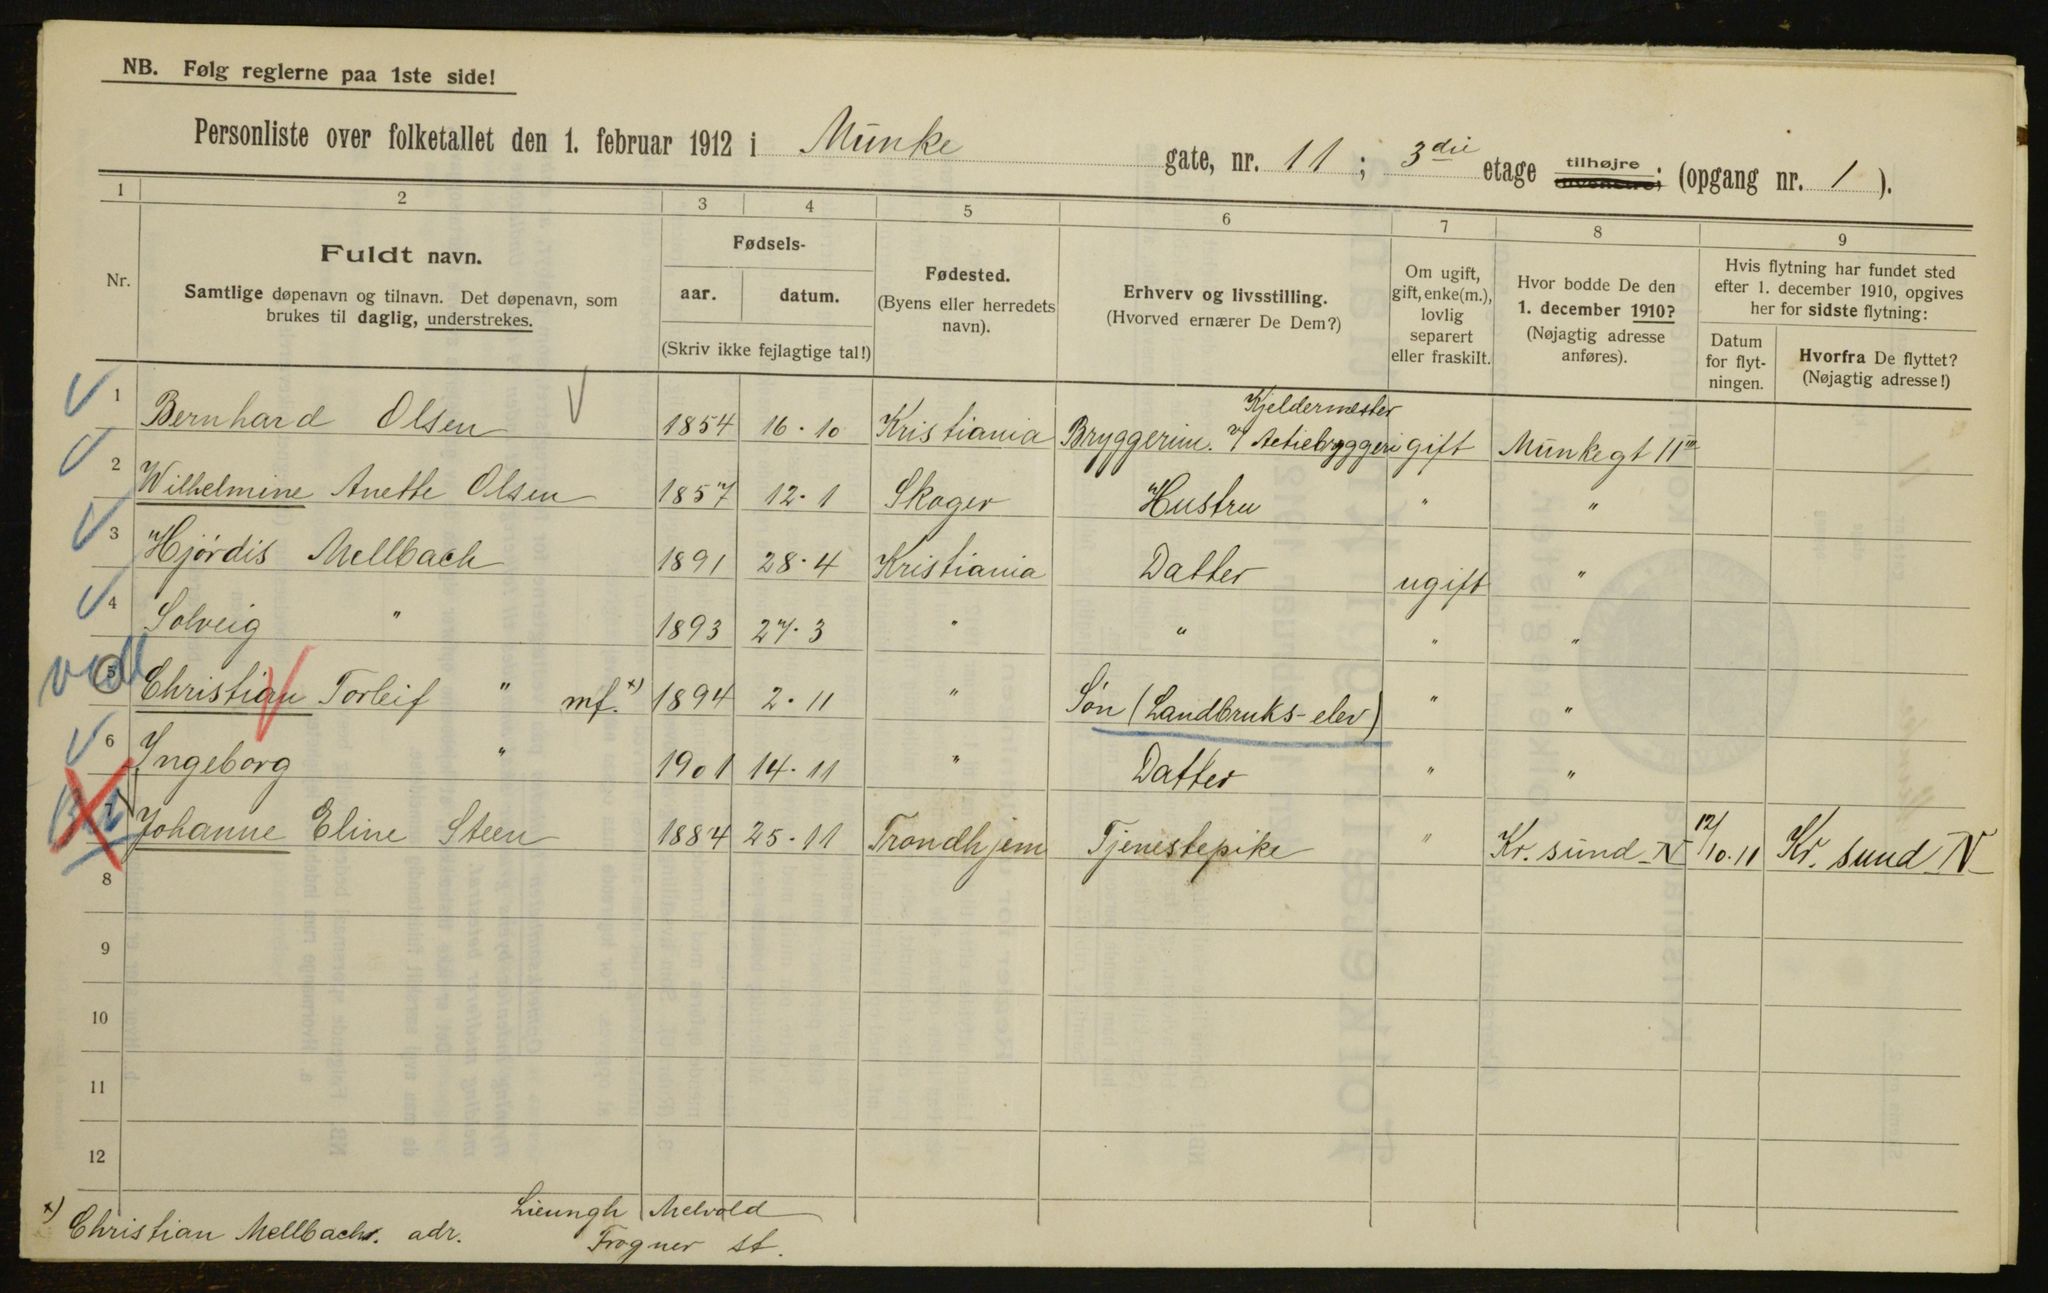 NB. Følg reglerne paa 1ste side!
Personliste over folketallet den 1. februar 1912 i Munke gate, nr. 11; 3die etage tilhøjre tilvenstre; (opgang nr. 1).
1 2 3 4 5 6 7 8 9
Nr.
Fuldt navn.
Samtlige døpenavn og tilnavn. Det døpenavn, som
brukes til daglig, understrekes.
Fødsels-
aar. datum.
(Skriv ikke fejlagtige tal!)
Fødested.
(Byens eller herredets
navn).
Erhverv og livsstilling.
(Hvorved ernærer De Dem?)
Om ugift,
gift, enke(m.),
lovlig
separert
eller fraskilt.
Hvor bodde De den
1. december 1910?
(Nøjagtig adresse
anføres).
Hvis flytning har fundet sted
efter 1. december 1910, opgives
her for sidste flytning:
Datum
for flyt-
ningen.
Hvorfra De flyttet?
(Nøjagtig adresse!)
Kjeldermester
1 Bernhard Olsen 1854 16.10 Kristiania Bryggerim. v/ Actiebryggeri gift Munkegt 11 III
2 Wilhelmine Anette Olsen 1857 12.1 Skoger Hustru " "
3 Hjørdis Mellbach 1891 28.4 Kristiania Datter ugift "
4 Solveig " 1893 27.3 " " " "
5 Christian Torleif " mf. x) 1894 2.11 " Søn (Landbruks-elev) " "
6 Ingeborg " 1901 14.11 " Datter " "
7 Johanne Eline Steen 1884 25.11 Trondhjem Tjenestepike " Kr. sund N 12/10.11 Kr. sund N
8
9
10
11
12
x) Christian Mellbach. adr. Lieungh Melvold
Frogner st.